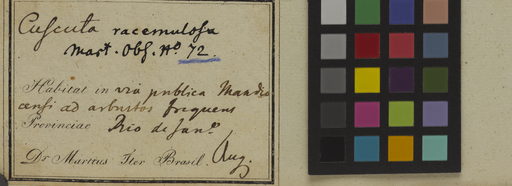 Cuscuta racemulosa
Mart. Obs. No 72.
Habitat in via publica Mandio
censi ad arbustos frequens
Provinciae Rio de Jano.
Dr. Martius Iter Brasil. Aug.